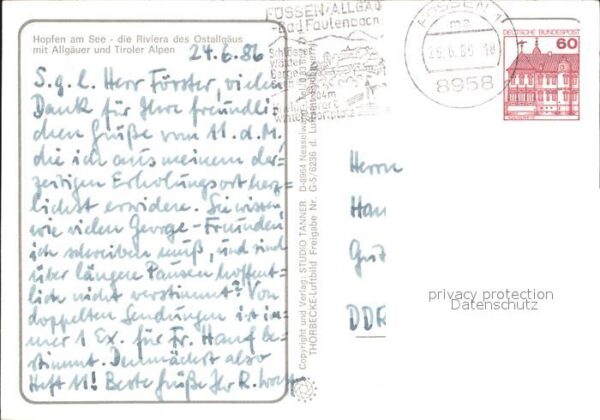 Hopfen am See - die Riviera des Ostallgäus
mit Allgäuer und Tiroler Alpen
24.6.86
S. g. l. Herr Förster, vielen
Dank für Ihre freundli-
chen Grüße vom 11. d. M.,
die ich aus meinem der-
zeitigen Erholungsort herz-
lichst erwidere. Sie wissen
wie vielen George-Freunden
ich schreiben muß, und sind
über längere Pausen hoffent-
lich nicht verstimmt? Von
doppelten Sendungen ist im-
mer 1 Ex. für Fr. Hauf be-
stimmt. Demnächst also
Heft 11! Beste Grüße Ihr R.
Copyright und Verlag: STUDIO TANNER D-8964 Nesselwang
THORBECKE-Luftbild Freigabe Nr. G-5/6236 d.
FÜSSEN/ALLGÄU
-Bad Faulenbach
FÜSSEN 1
26.6.86-18
8958
DEUTSCHE BUNDESPOST
60
Herrn
DDR
privacy protection
Datenschutz